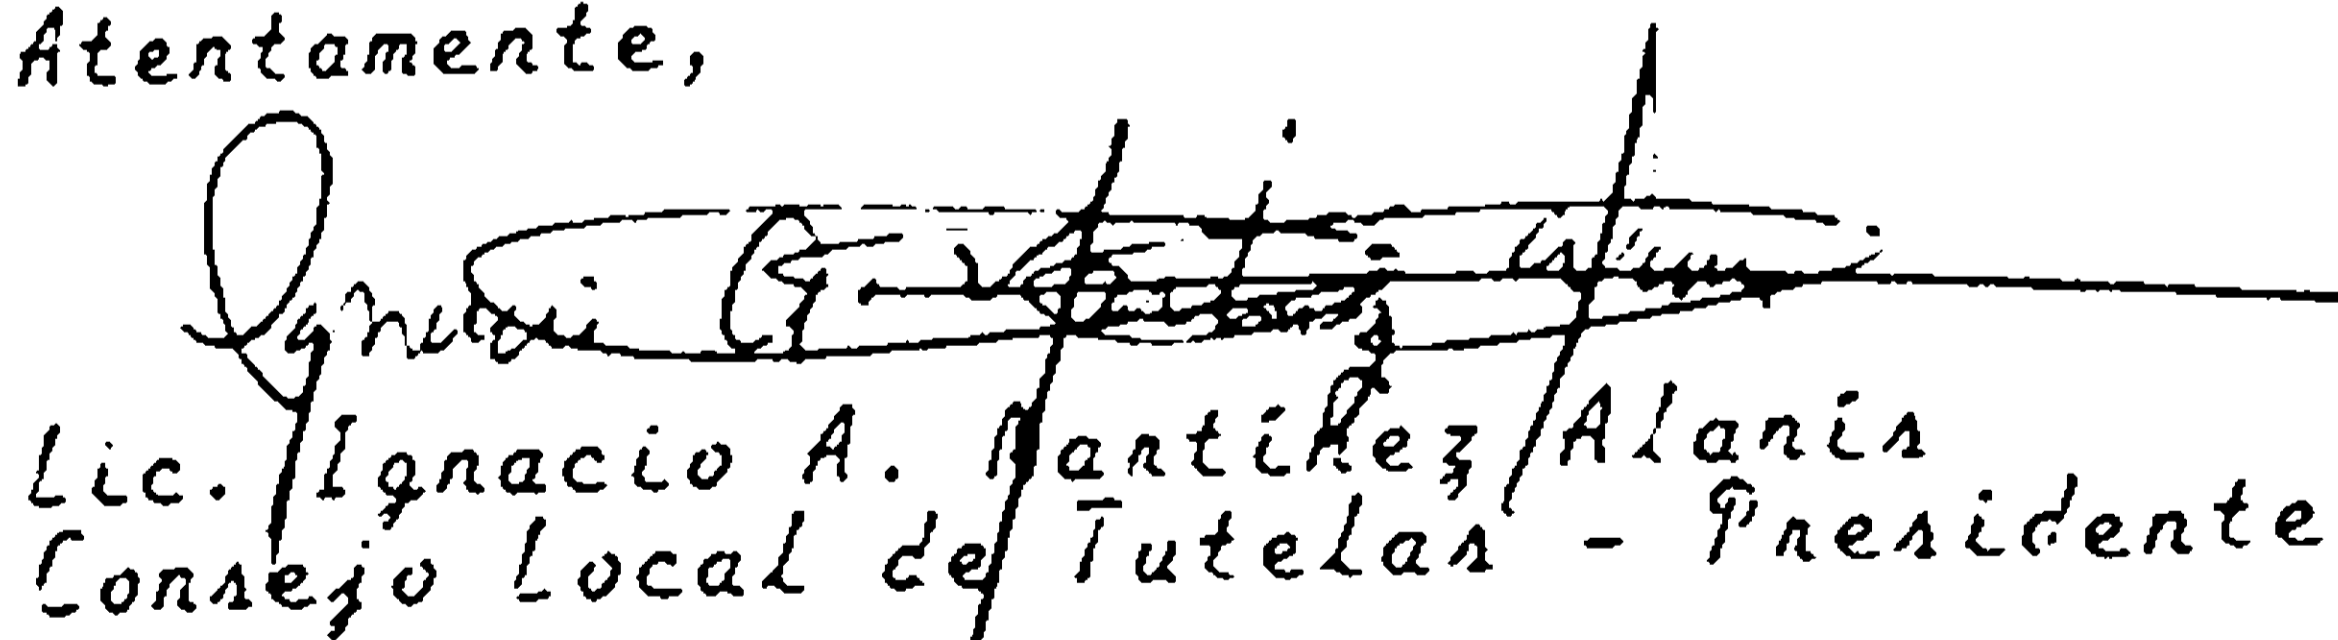 Atentamente,
Lic. Ignacio A. Martínez Alanís
Consejo Local de Tutelas - Presidente